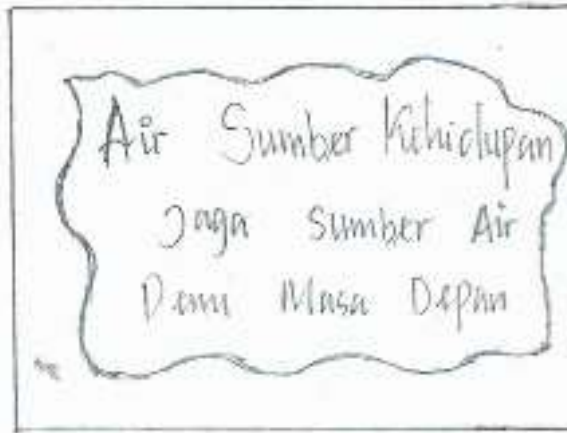 Air Sumber Kehidupan
Jaga Sumber Air
Demi Masa Depan